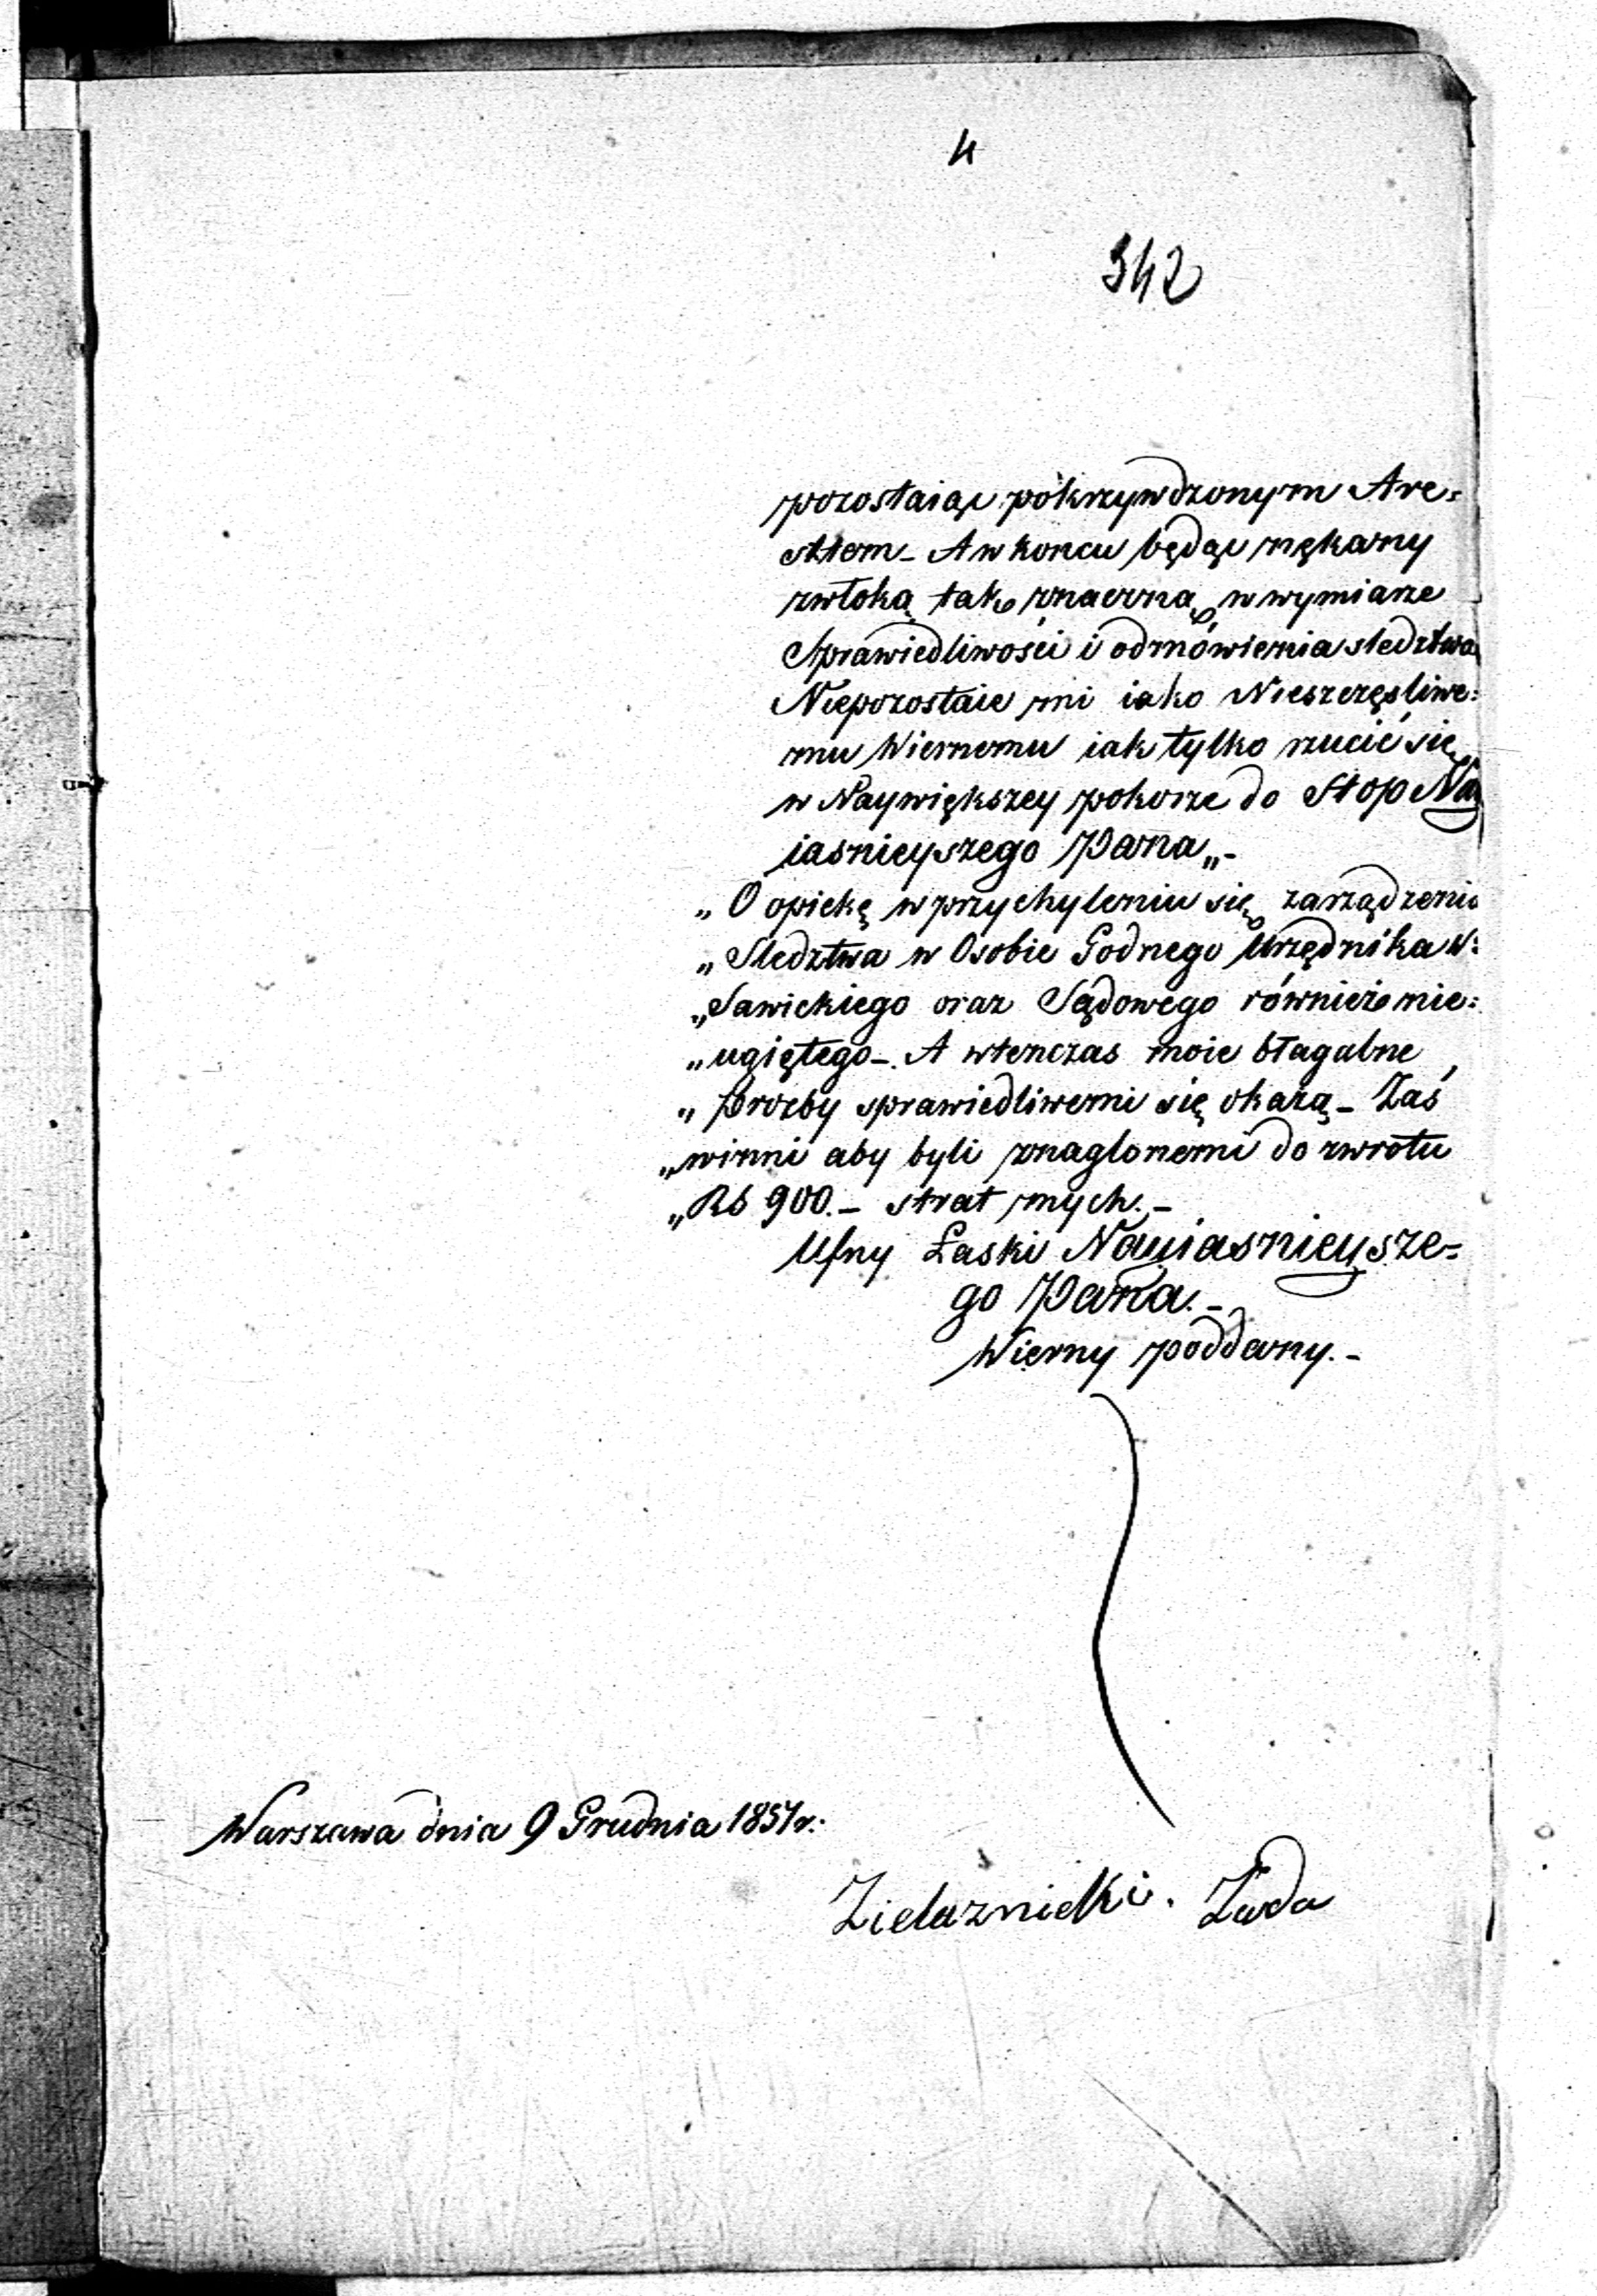 4
342
pozostaiąc pokrzywdzonym Are-
sztem - A w koncu będąc nękany
zwłoką tak znaczną, w wymiarze
Sprawiedliwości i odmówienia sledztwa
Niepozostaie mi iako Nieszczęsliwe-
mu Wiernemu iak tylko rzucić się
w Naywiększey pokorze do Stop Na
iasnieyszego Pana „-
„ O opiekę w przychyleniu się zarządzenia
„ Sledztwa w Osobie Godnego Urzędnika W:
„ Sawickiego oraz Sądowego również nie-
„ ugiętego - A wtenczas moie błagalne
„ prozby sprawiedliwemi się okażą - Zaś
„ winni aby byli znaglonemi do zwrotu
„ Rs 900. - strat mych. -
Ufny Łaski Nayiasnieysze-
go Pana. -
Wierny poddany. -
Warszawa dnia 9 Grudnia 1851 r.